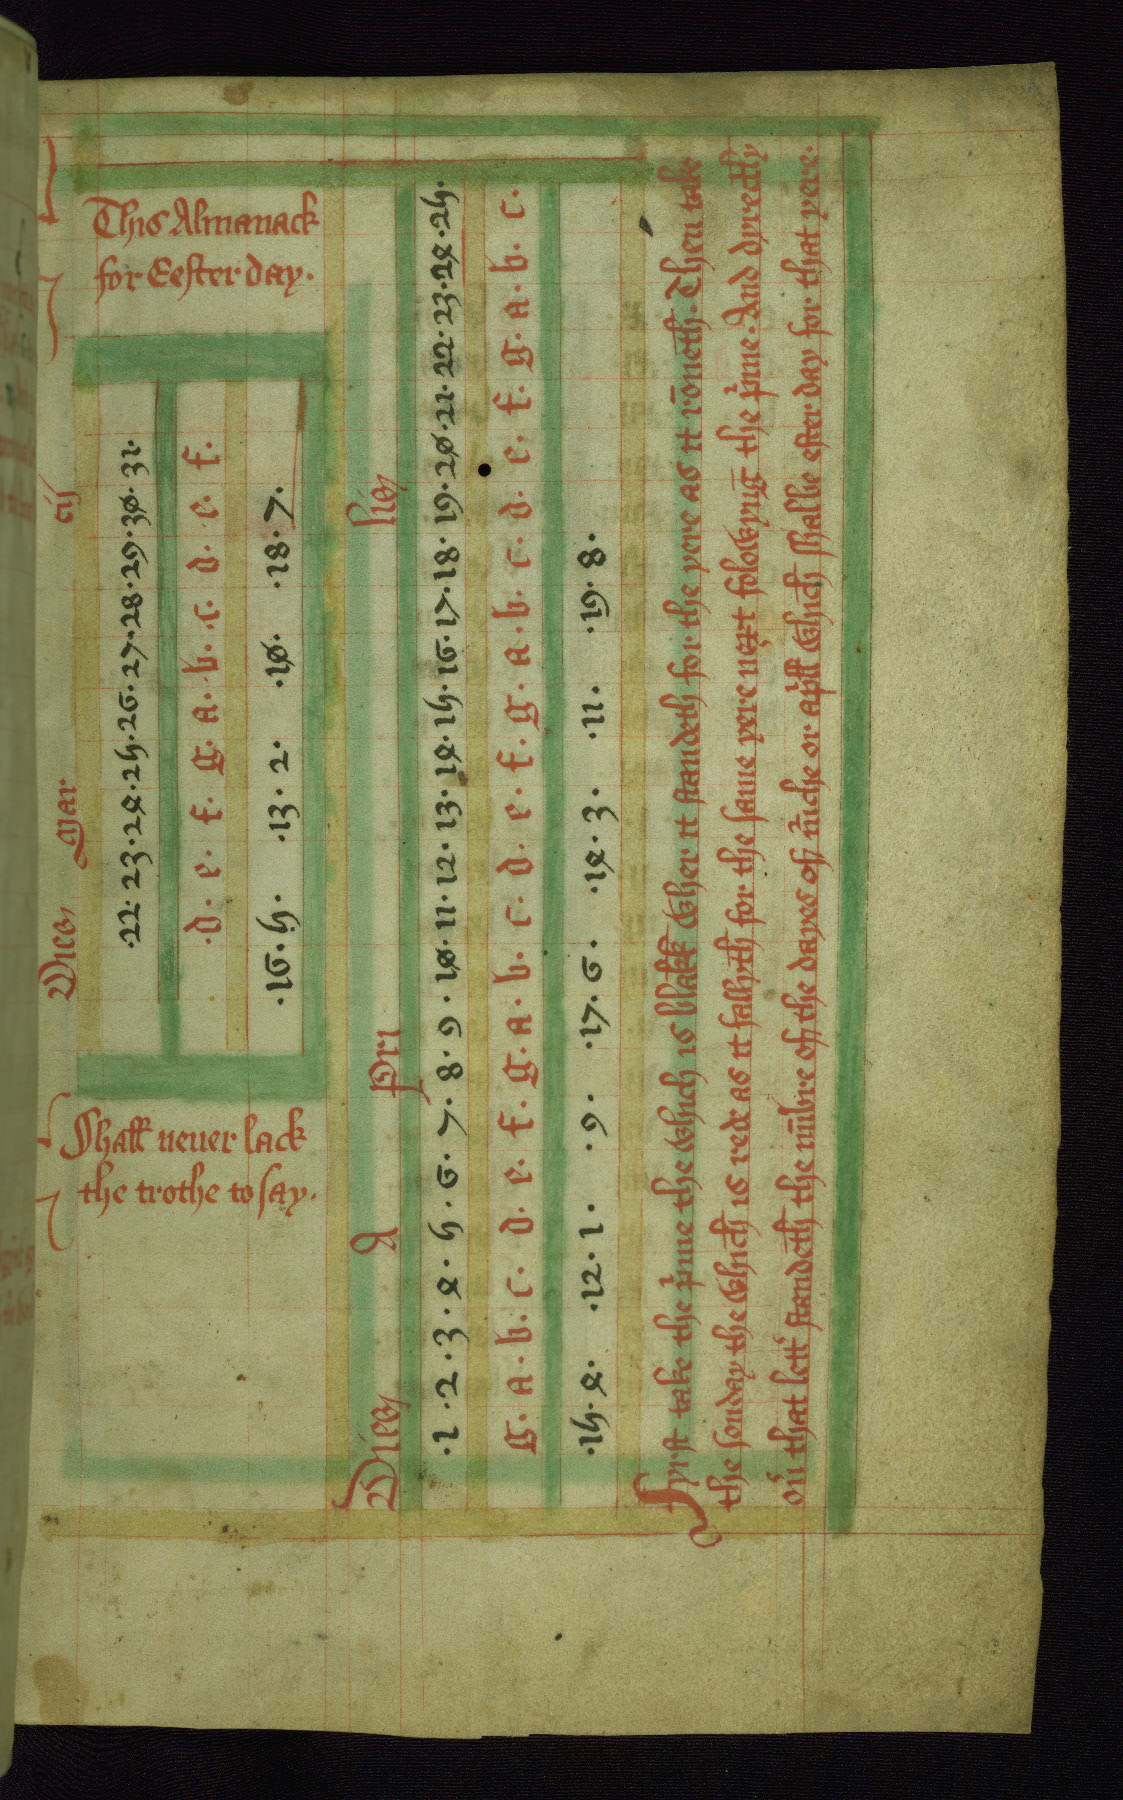 This Almanack
for Eester day.
Shall neuer lack
the trothe to say.
Dies Mar cij
.22.23.24.25.26.27.28.29.30.31.
.d. e. f. g. a. b. c. d. e. f.
.16.5. .13.2. .10. .18.7.
Dies A pri lis
.1.2.3.4.5.6.7.8.9.10.11.12.13.14.15.16.17.18.19.20.21.22.23.24.25.
g. a. b. c. d. e. f. g. a. b. c. d. e. f. g. a. b. c. d. e. f. g. a. b. c.
.15.4. .12.1. .9. .17.6. .14.3. .11. .19.8.
Fyrst take the pͥme the which is blakk wher it standeth for the yere as it rōneth. Then take
the sonday the which is rede as it fallyth for the same yere next folowyng the pͥme. And dyrectly
ou̓ that lett̓ standeth the nūbre of the dayes of m̓che or apͥll which shalbe ester day for that yere.